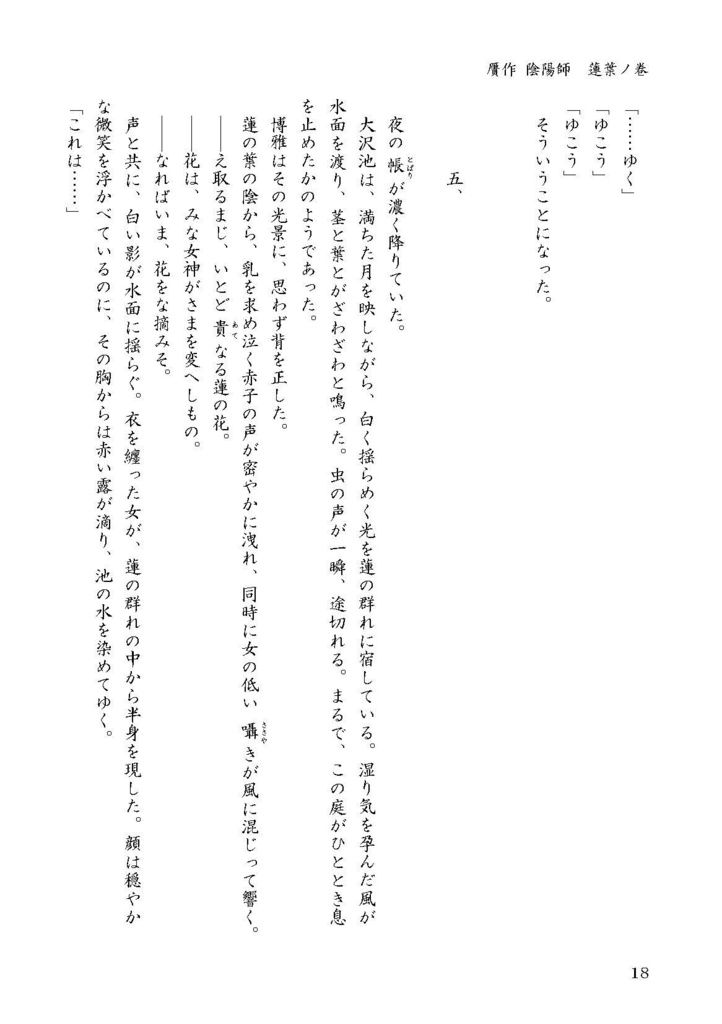 贋作 陰陽師　蓮葉ノ巻
「……ゆく」
「ゆこう」
「ゆこう」
そういうことになった。
五、
夜の帳が濃く降りていた。
とばり
大沢池は、満ちた月を映しながら、白く揺らめく光を蓮の群れに宿している。湿り気を孕んだ風が
水面を渡り、茎と葉とがざわざわと鳴った。虫の声が一瞬、途切れる。まるで、この庭がひととき息
を止めたかのようであった。
博雅はその光景に、思わず背を正した。
蓮の葉の陰から、乳を求め泣く赤子の声が密やかに洩れ、同時に女の低い囁きが風に混じって響く。
ささや
――え取るまじ、いとど貴なる蓮の花。
あて
――花は、みな女神がさまを変へしもの。
――なればいま、花をな摘みそ。
声と共に、白い影が水面に揺らぐ。衣を纏った女が、蓮の群れの中から半身を現した。顔は穏やか
な微笑を浮かべているのに、その胸からは赤い露が滴り、池の水を染めてゆく。
「これは……」
18